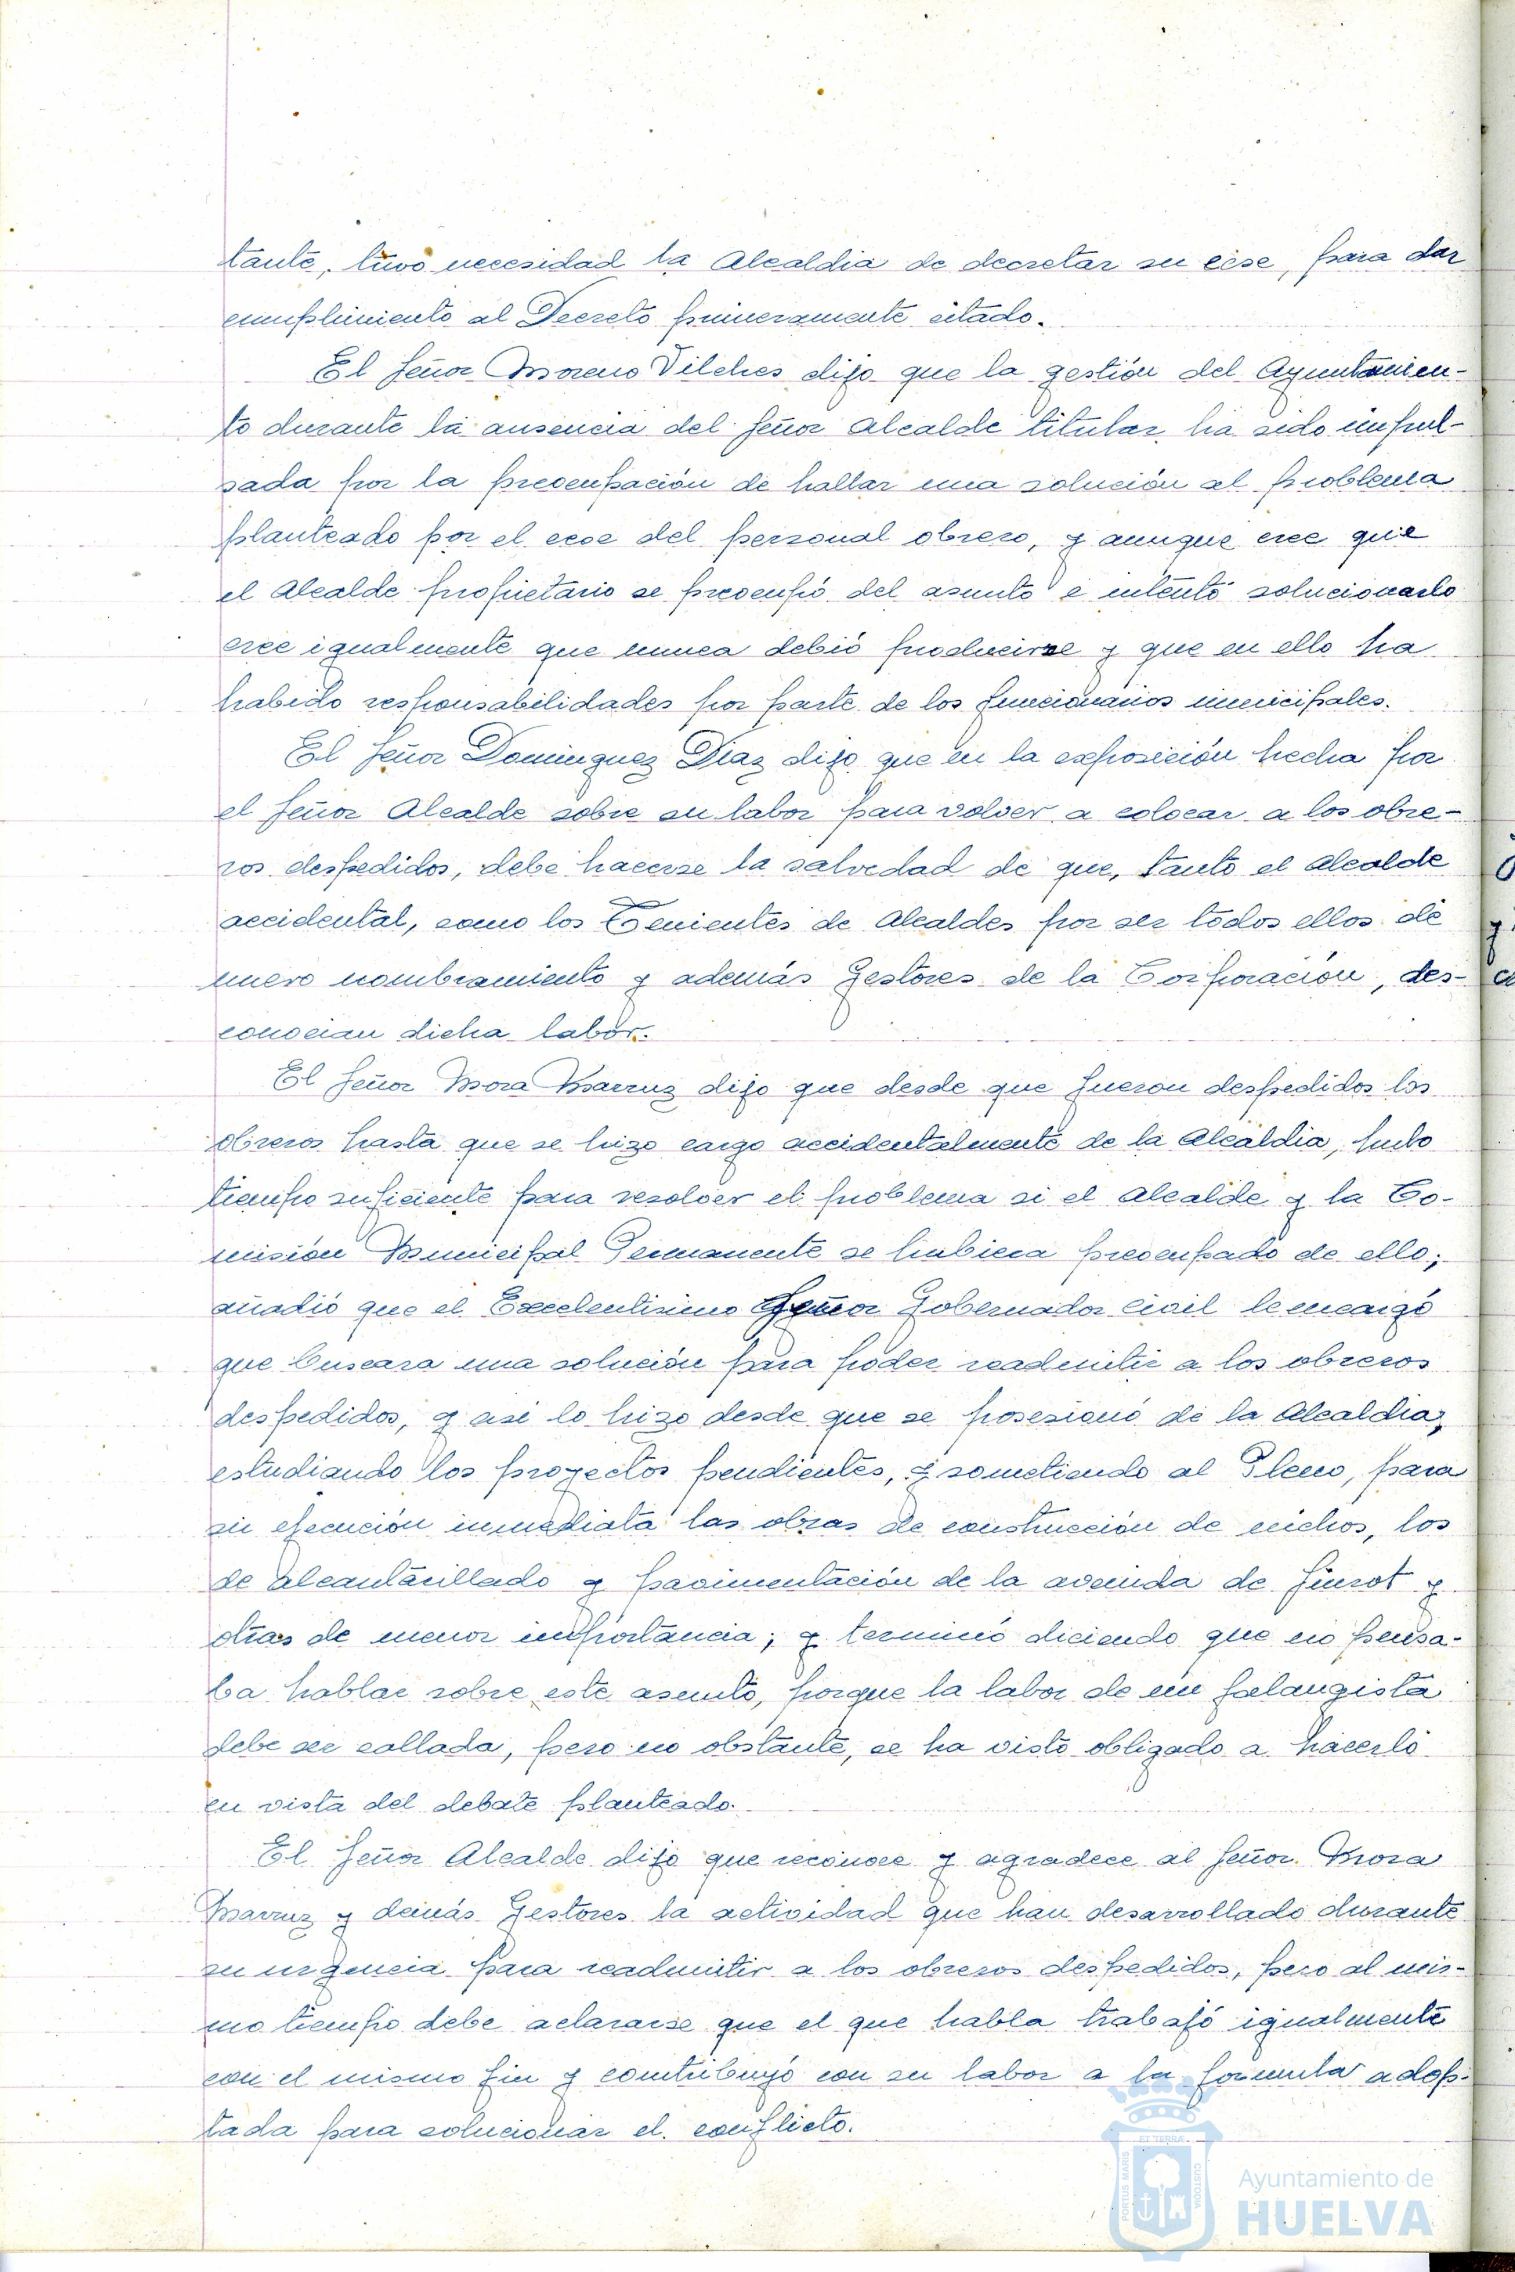 tante, tuvo necesidad la Alcaldia de decretar su cese, para dar
cumplimiento al Decreto primeramente citado.
El Señor Moreno Vilches dijo que la gestión del Ayuntamien-
to durante la ausencia del Señor Alcalde titular ha sido impul-
sada por la preocupación de hallar una solución al problema
planteado por el cese del personal obrero, y aunque cree que
el Alcalde propietario se preocupó del asunto e intentó solucionarlo
cree igualmente que nunca debió producirse y que en ello ha
habido responsabilidades por parte de los funcionarios municipales.
El Señor Dominguez Diaz dijo que en la exposición hecha por
el Señor Alcalde sobre su labor para volver a colocar a los obre-
ros despedidos, debe hacerse la salvedad de que, tanto el Alcalde
accidental, como los Tenientes de Alcaldes por ser todos ellos de
nuevo nombramiento y además Gestores de la Corporación, des-
conocian dicha labor.
El Señor Mora Marruz dijo que desde que fueron despedidos los
obreros hasta que se hizo cargo accidentalmente de la Alcaldia, hubo
tiempo suficiente para resolver el problema si el Alcalde y la Co-
misión Municipal Permanente se hubiera preocupado de ello;
añadió que el Excelentisimo Señor Gobernador civil le encargó
que buscara una solución para poder readmitir a los obreros
despedidos, y asi lo hizo desde que se posesionó de la Alcaldia,
estudiando los proyectos pendientes, y sometiendo al Pleno, para
su ejecución inmediata las obras de construcción de nichos, los
de alcantarillado y pavimentación de la avenida de
otras de menor importancia; y terminó diciendo que no pensa-
ba hablar sobre este asunto, porque la labor de un falangista
debe ser callada, pero no obstante, se ha visto obligado a hacerlo
en vista del debate planteado.
El Señor Alcalde dijo que reconoce y agradece al Señor Mora
Marruz y demás Gestores la actividad que han desarrollado durante
su para readmitir a los obreros despedidos, pero al mis-
mo tiempo debe aclararse que el que habla trabajó igualmente
con el mismo fin y contribuyó con su labor a la formula adop-
tada para solucionar el conflicto.
PORTUS MARIS ET TERRÆ CUSTODIA
Ayuntamiento de
HUELVA